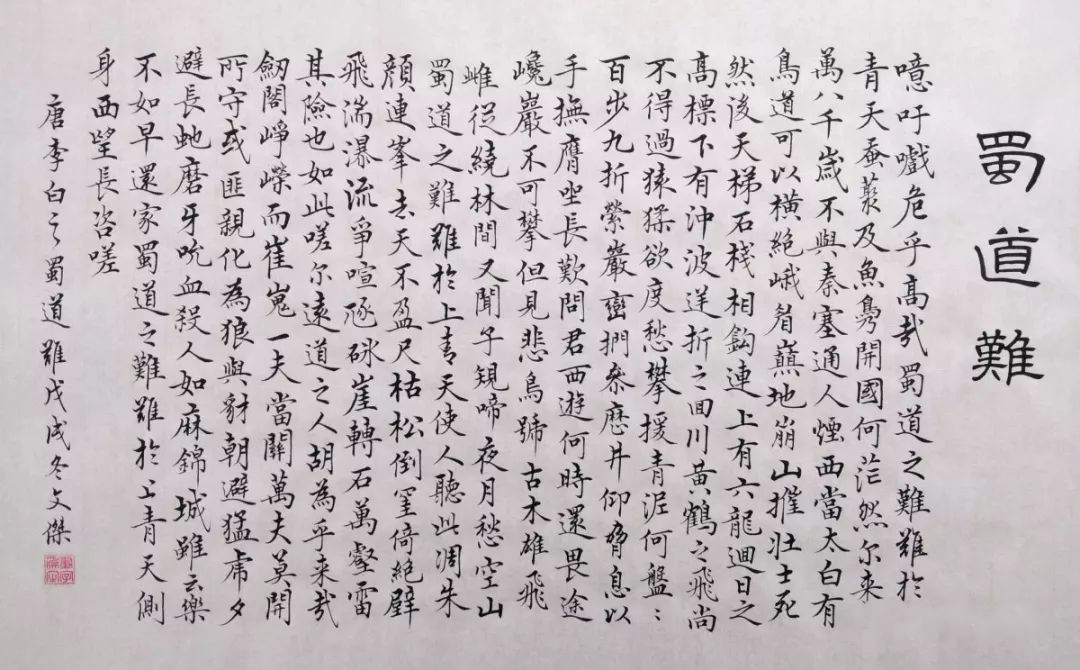 蜀道難
噫吁戲危乎高哉蜀道之難難於
青天蚕叢及魚鳧開國何茫然尔来
萬八千歲不與秦塞通人煙西當太白有
鳥道可以橫絕峨眉巔地崩山摧壯士死
然後天梯石棧相鈎連上有六龍迴日之
高標下有沖波逆折之回川黃鶴之飛尚
不得過猿猱欲度愁攀援青泥何盤〻
百步九折縈巖巒捫参歷井仰脅息以
手撫膺坐長歎問君西遊何時還畏途
巉巖不可攀但見悲鳥號古木雄飛
雌從繞林間又聞子規啼夜月愁空山
蜀道之難難於上青天使人聽此凋朱
顏連峯去天不盈尺枯松倒挂倚絕壁
飛湍瀑流爭喧豗砯崖轉石萬壑雷
其險也如此嗟尔遠道之人胡為乎来哉
劒閣崢嶸而崔嵬一夫當關萬夫莫開
所守或匪親化為狼與豺朝避猛虎夕
避長虵磨牙吮血殺人如麻錦城雖云樂
不如早還家蜀道之難難於上青天側
身西望長咨嗟
唐李白之蜀道難戊戌冬文傑